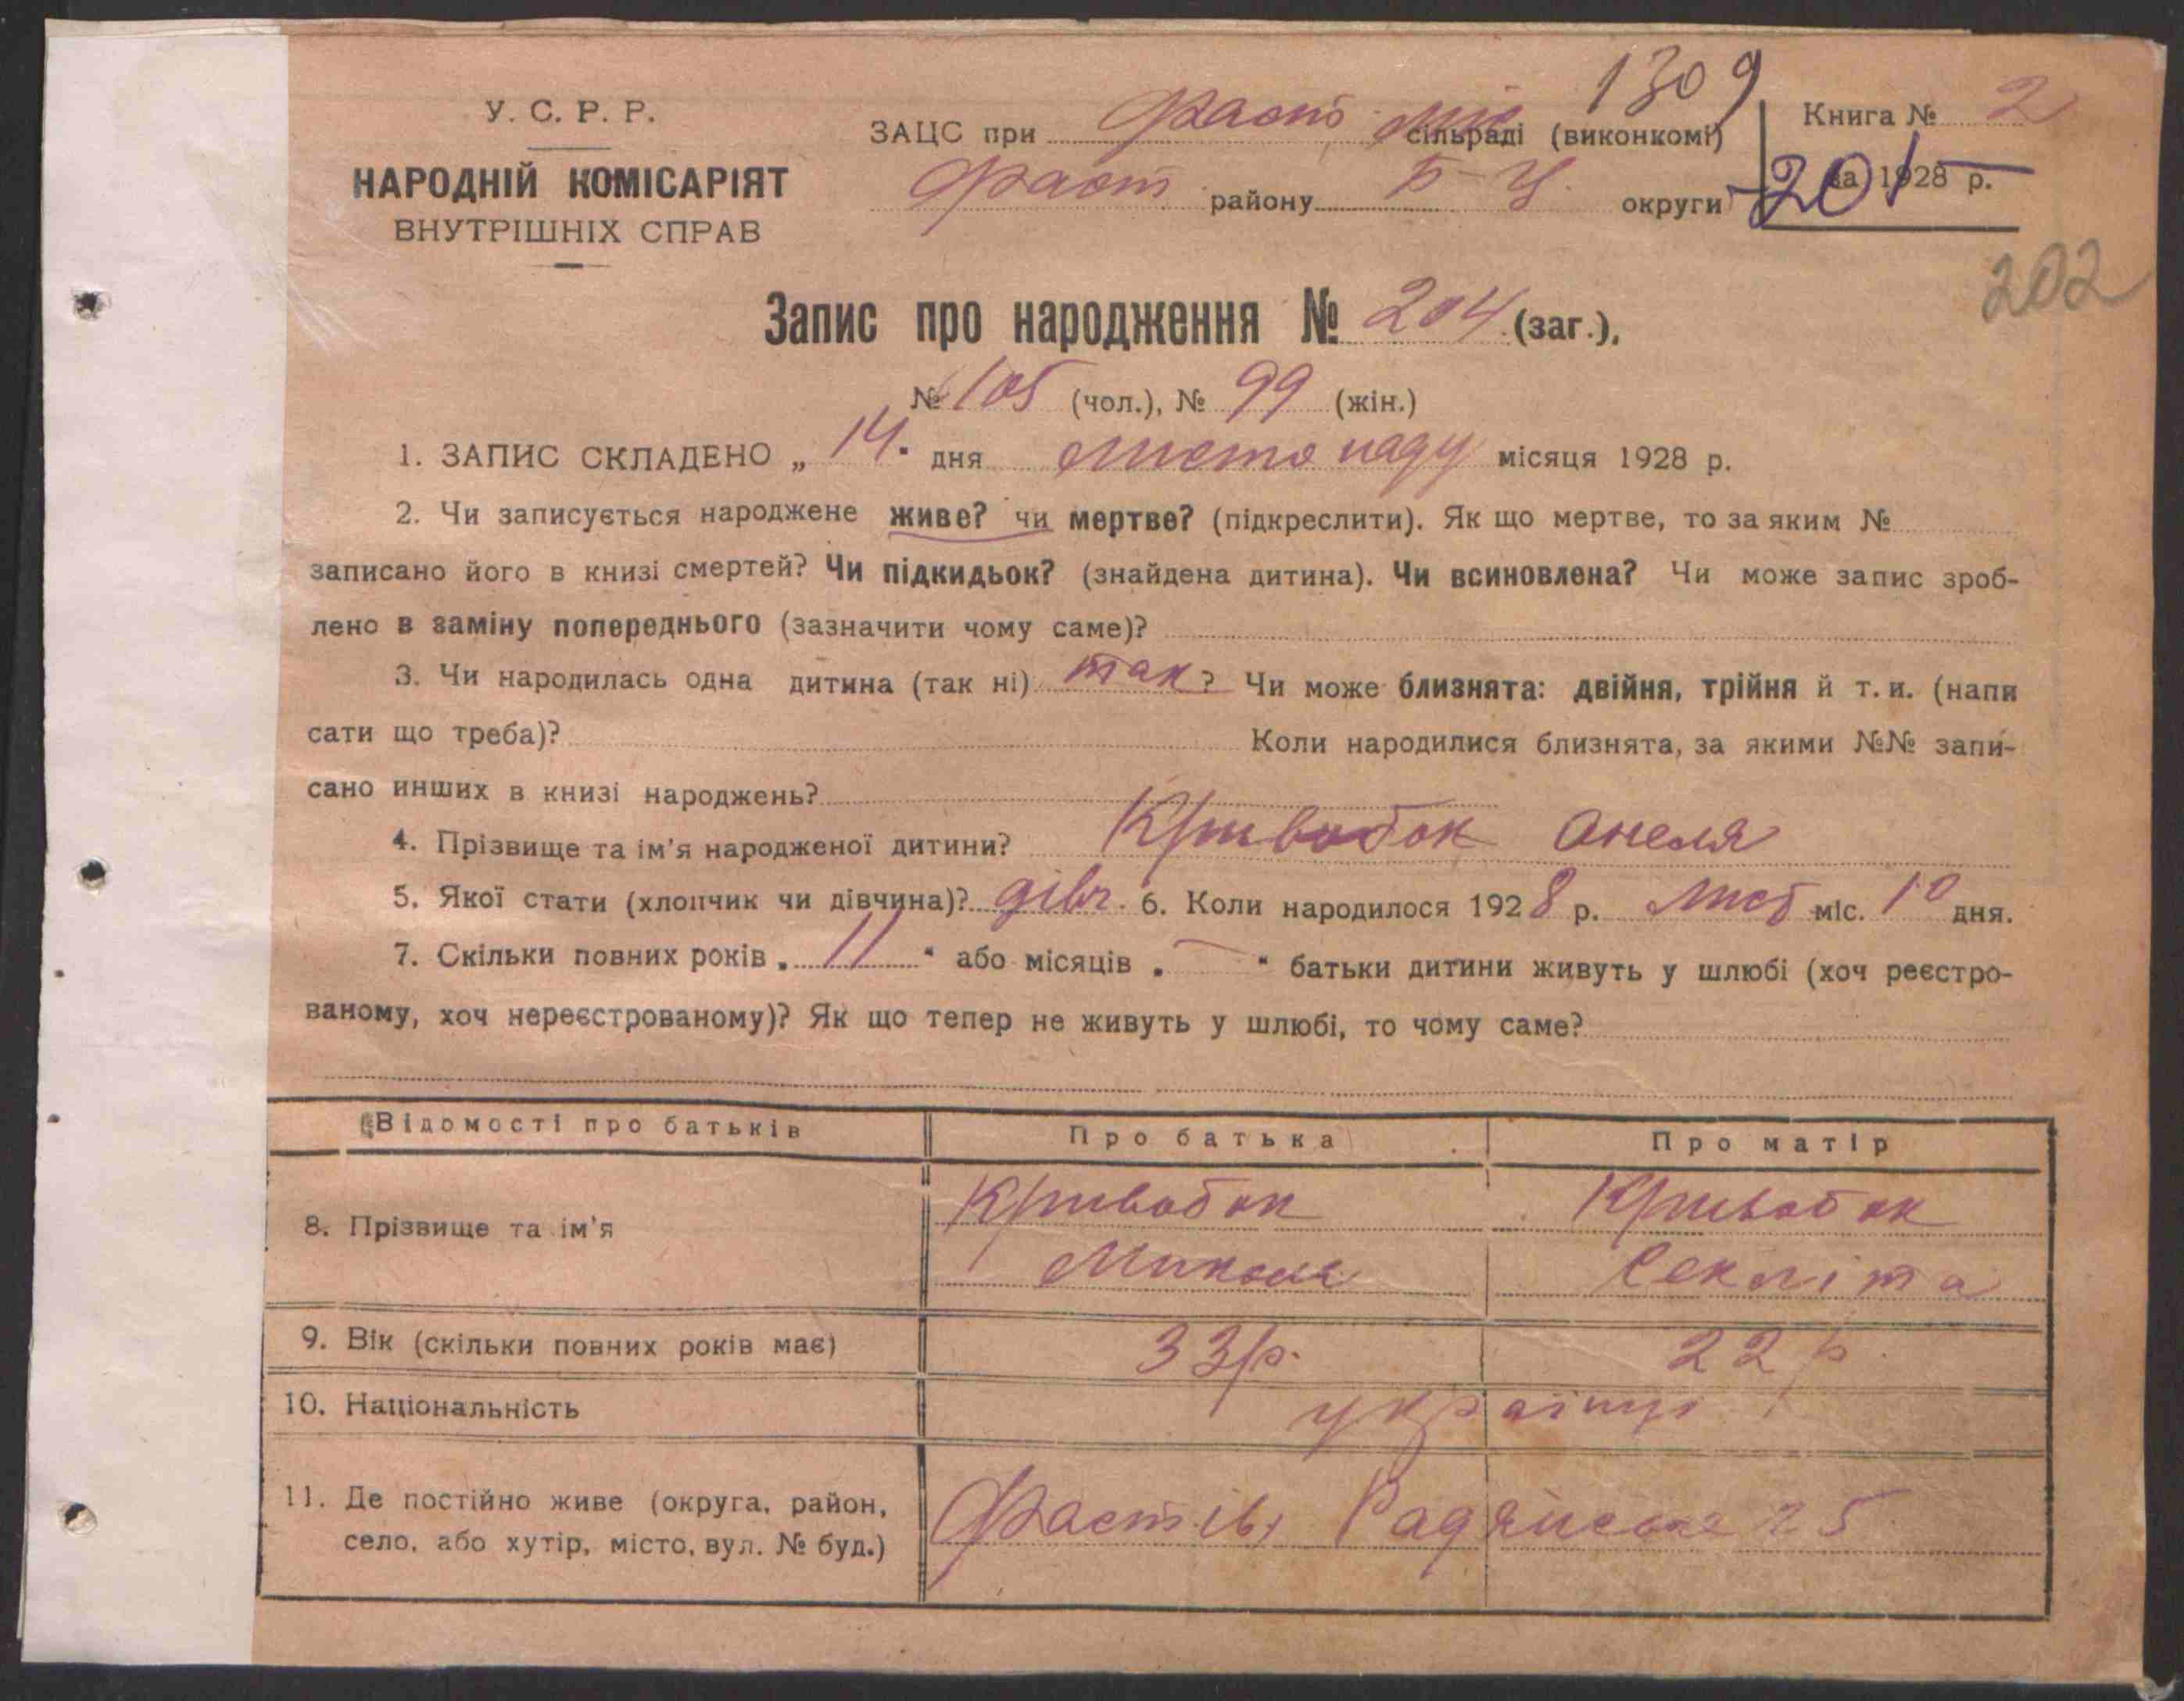 1309
У. С. Р. Р.
НАРОДНІЙ КОМІСАРІЯТ
ВНУТРІШНІХ СПРАВ
ЗАЦС при Фаст міс сільраді (виконкомі)
Фаст району Б-Ц. округи
Книга № 2
за 1928 р.
201
202
Запис про народження № 204 (заг.),
№ 105 (чол.), № 99 (жін.)
1. ЗАПИС СКЛАДЕНО „ 14 " дня листопаду місяця 1928 р.
2. Чи записується народжене живе? чи мертве? (підкреслити). Як що мертве, то за яким №
записано його в книзі смертей? Чи підкидьок? (знайдена дитина). Чи всиновлена? Чи може запис зроб-
лено в заміну попереднього (зазначити чому саме)?
3. Чи народилась одна дитина (так ні) так? Чи може близнята: двійня, трійня й т. и. (напи
сати що треба)? Коли народилися близнята, за якими №№ запи-
сано инших в книзі народжень?
4. Прізвище та ім'я народженої дитини? Кривобок Анеля
5. Якої стати (хлопчик чи дівчина)? дівч. 6. Коли народилося 1928 р. Лист міс. 10 дня.
7. Скільки повних років „ 11 " або місяців „ — " батьки дитини живуть у шлюбі (хоч реєстро-
ваному, хоч нереєстрованому)? Як що тепер не живуть у шлюбі, то чому саме?
Відомості про батьків Про батька Про матір
8. Прізвище та ім'я Кривобок Микола Кривобок Секліта
9. Вік (скільки повних років має) 33 р. 22 р.
10. Національність українці
11. Де постійно живе (округа, район,
село, або хутір, місто, вул. № буд.) Фастів, Радянська 25